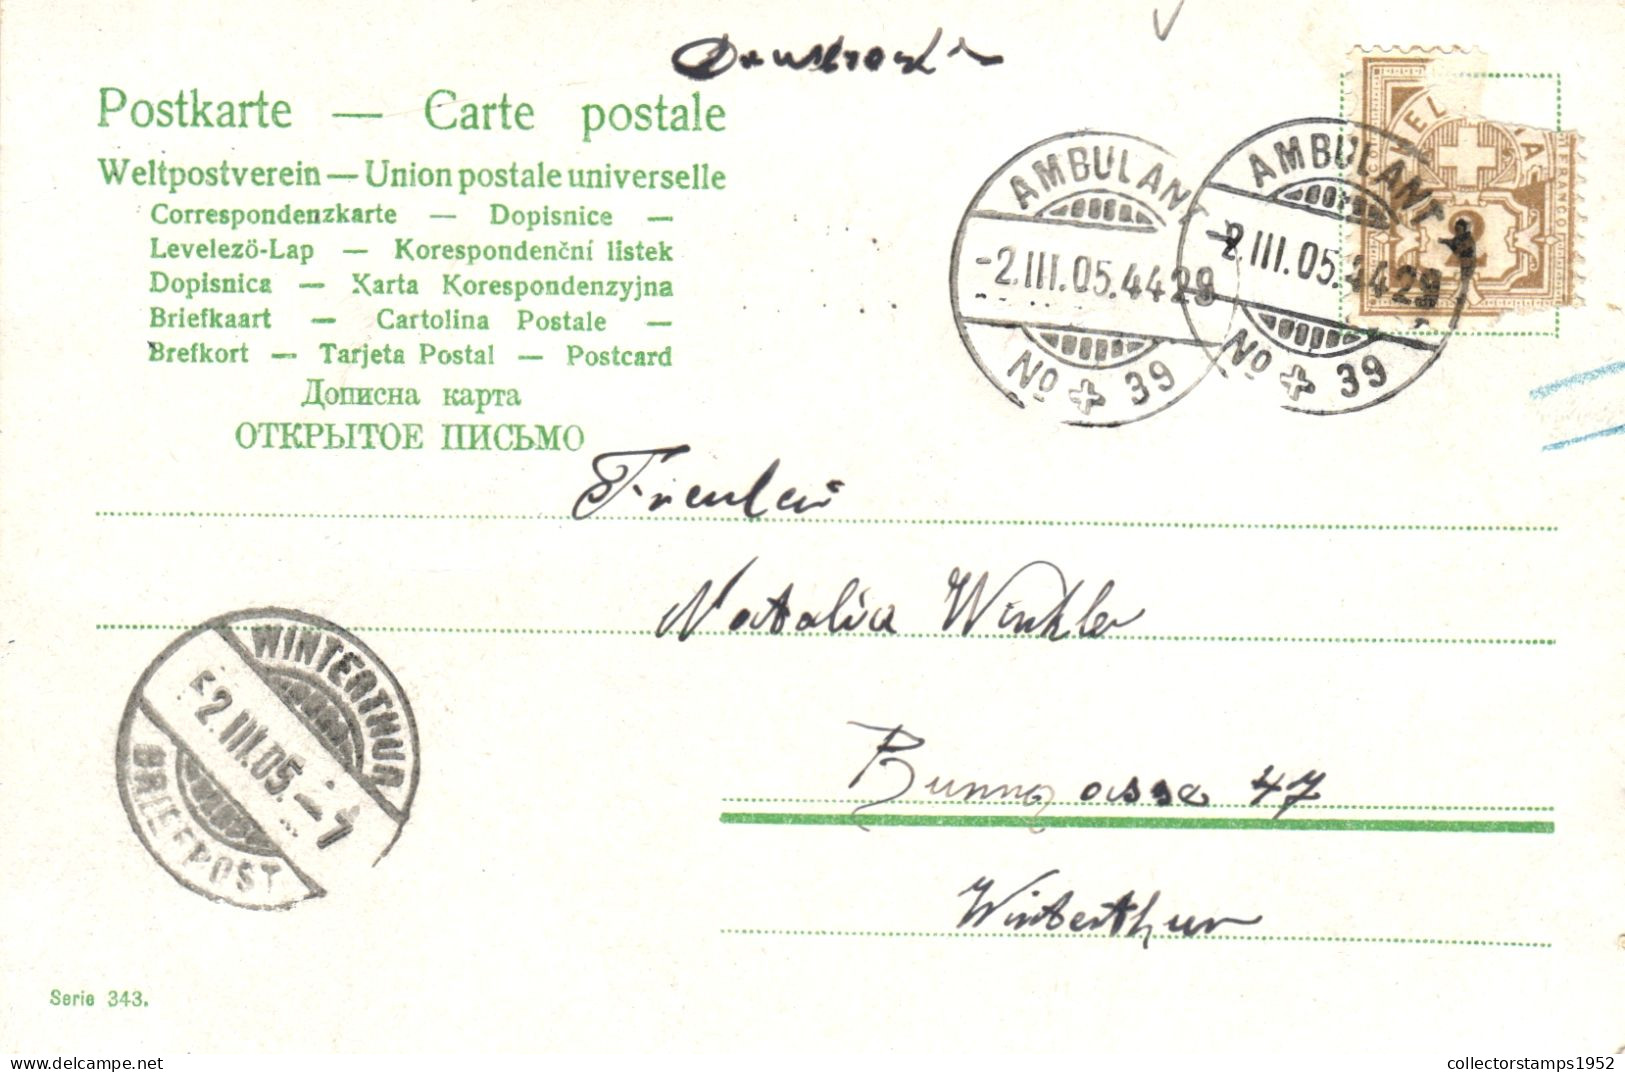 Drucksache
Postkarte — Carte postale
Weltpostverein — Union postale universelle
Correspondenzkarte — Dopisnice —
Levelezö-Lap — Korespondenční listek
Dopisnica — Karta Korespondenzyjna
Briefkaart — Cartolina Postale —
Brefkort — Tarjeta Postal — Postcard
Дописна карта
ОТКРЫТОЕ ПИСЬМО
AMBULANT
-2.III.05.4429
No 39
AMBULANT
-2.III.05.4429
No 39
FRANCO
2
Fräulein
Natalia Winkler
47
Winterthur
WINTERTHUR
-2.III.05.-7
BRIEFPOST
Serie 343.
collectorstamps1952